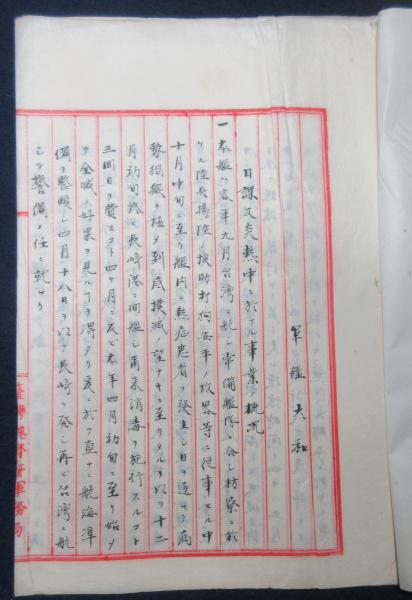 軍艦大和
日課又炎熱中ニ於ケル事業概況
一本艦ハ客年九月台湾ニ航シ常備艦隊ニ合シ枋寮ニ於
ケル陸兵揚陸ノ援助打狗安平ノ攻撃等ニ従事スル中
十月中旬ニ至リ艦内ニ熱症患者ヲ発生シ日ヲ逐フテ病
勢猖獗ヲ極メ到底撲滅ノ望ナキニ至リタルヲ以テ十二
月初旬終ニ長崎港ニ回艦シ再来消毒ヲ施行スルコト
三回日ヲ費スコト四ケ月ニ及ビ本年四月初旬ニ至リ始メ
テ全滅ノ好果ヲ見ルヲ得タリ爰ニ於テ直チニ航海準
備ヲ整頓シ四月十八日ヲ以テ長崎ヲ発シ再ビ台湾ニ航
シテ警備ノ任ニ就ケリ
鎮守府軍務局